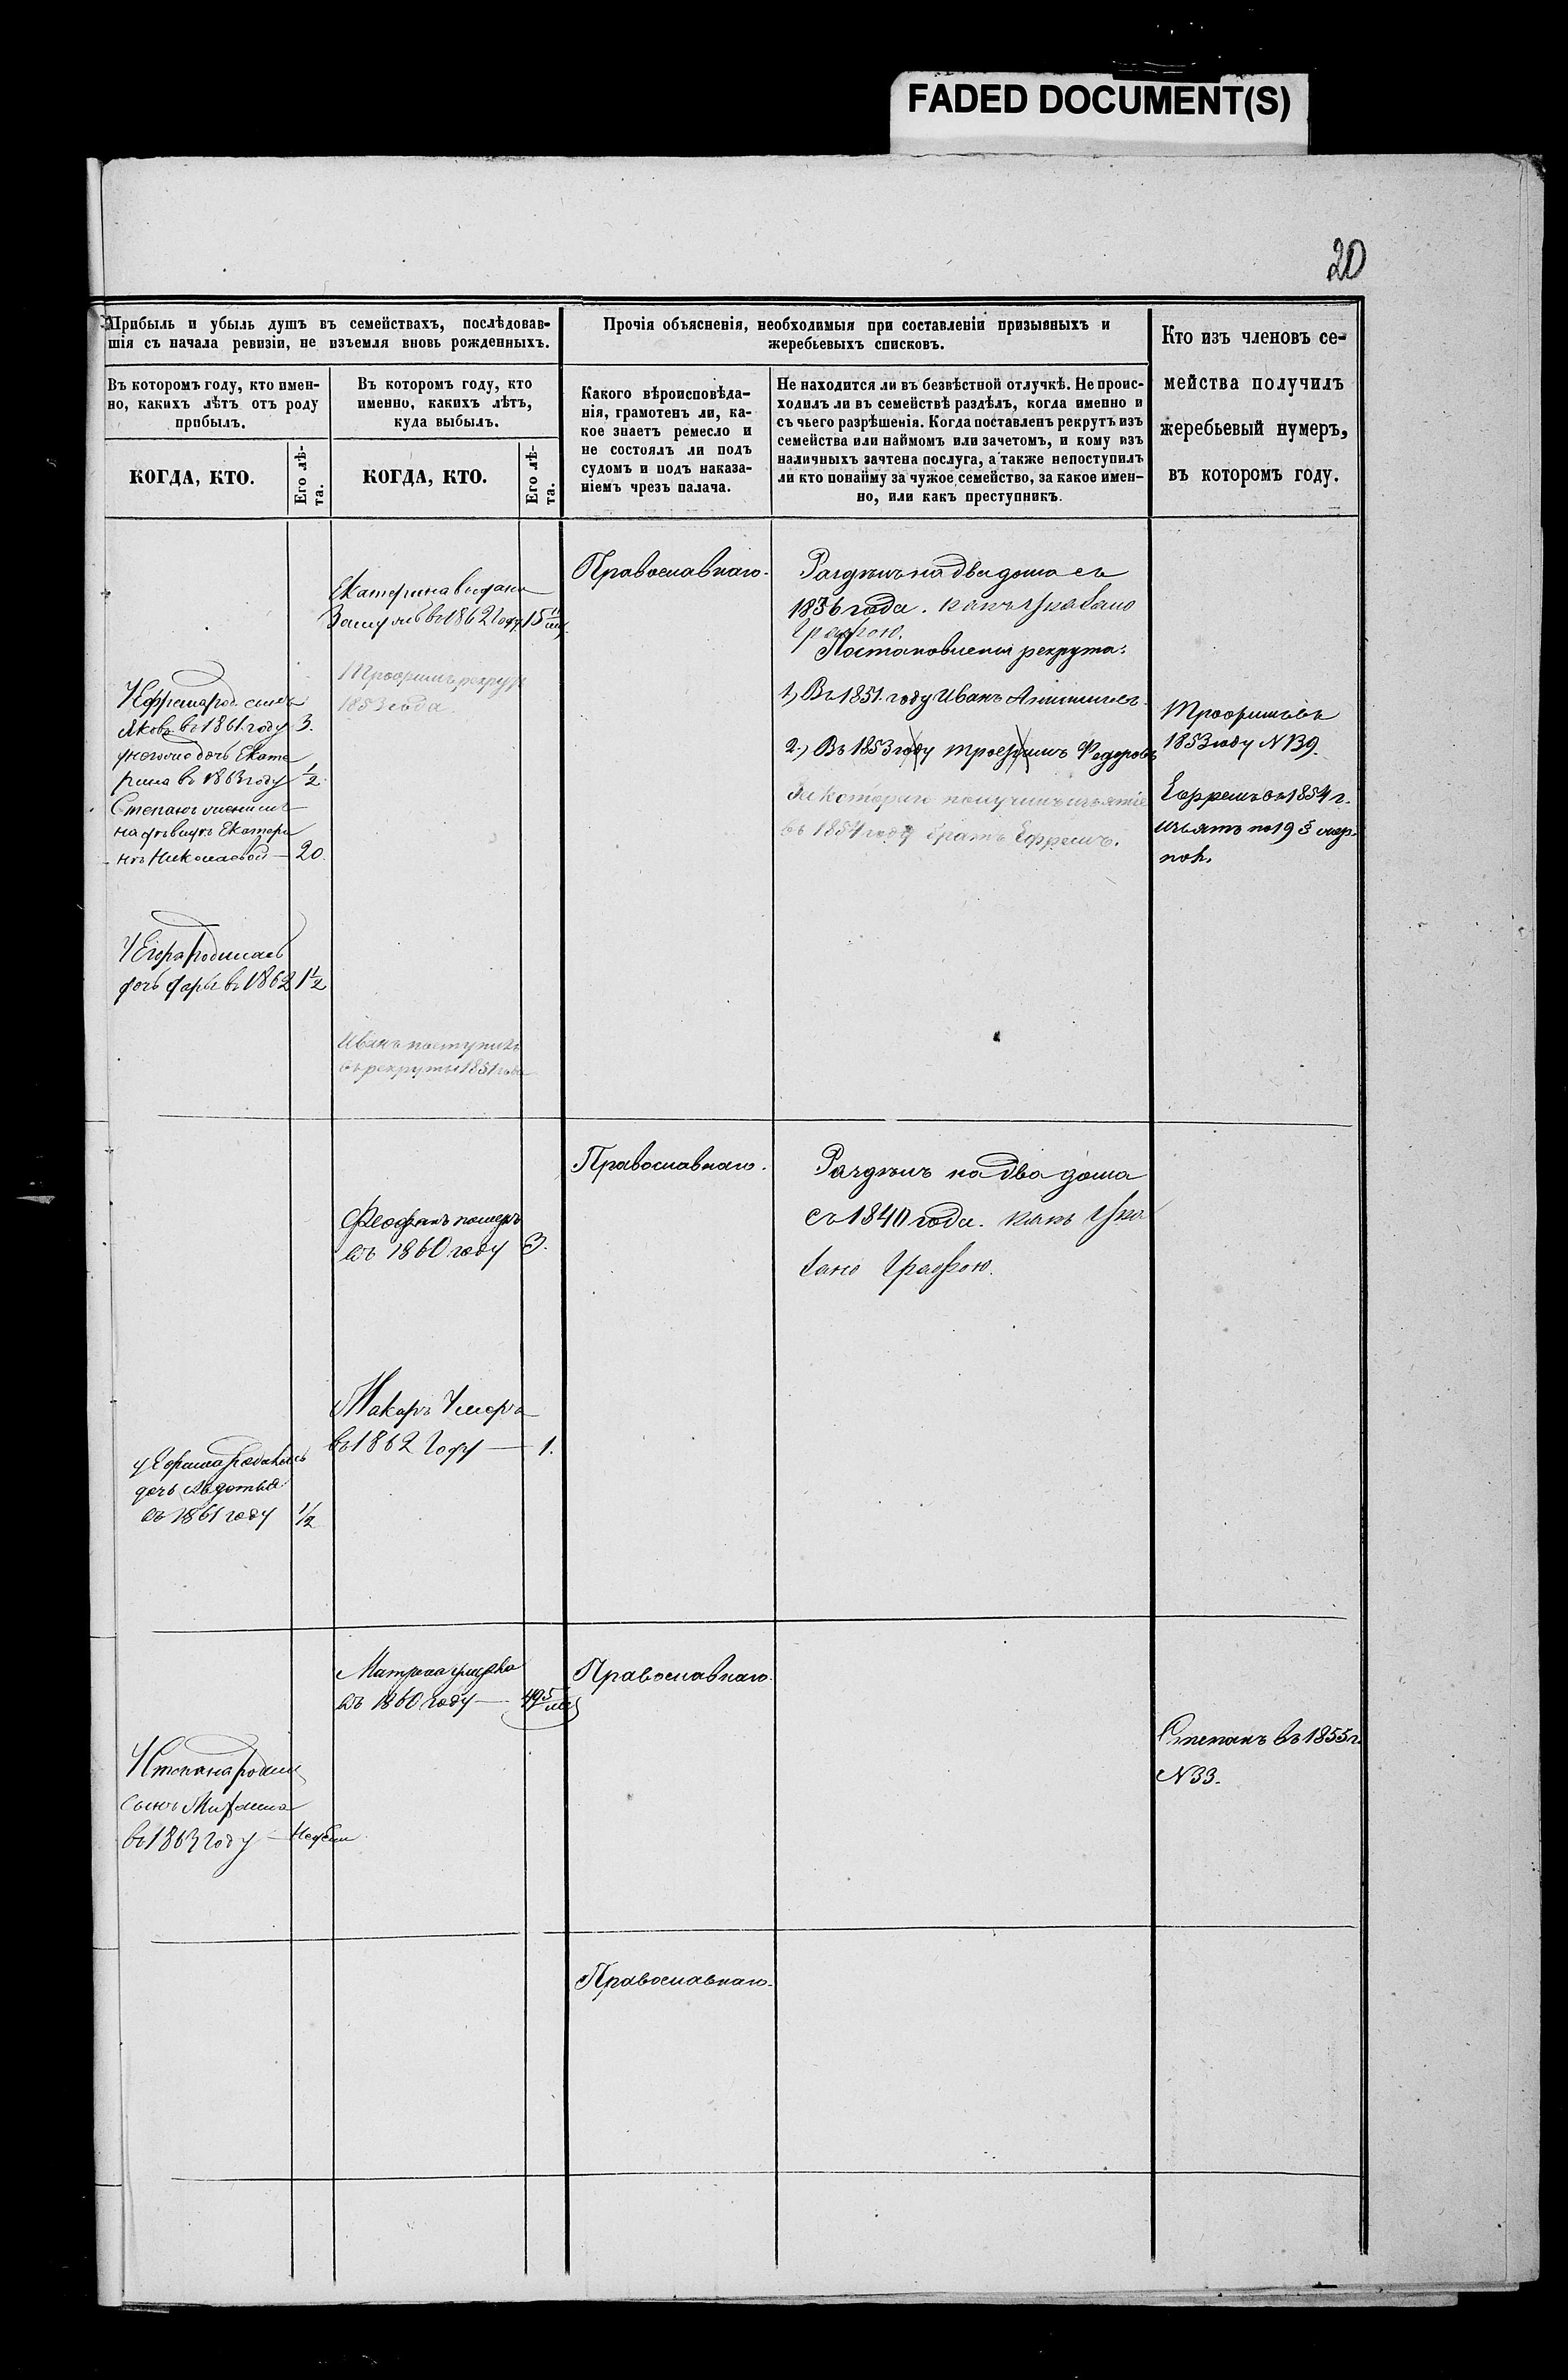 FADED DOCUMENT(S)
20
Прибыль и убыль душъ въ семействахъ, послѣдовав-
шія съ начала ревизіи, не изъемля вновь рожденныхъ.
Прочія объясненія, необходимыя при составленіи призывныхъ и
жеребьевыхъ списковъ.
Кто изъ членовъ се-
мейства получилъ
жеребьевый нумеръ,
въ которомъ году.
Въ которомъ году, кто имен-
но, какихъ лѣтъ отъ роду
прибылъ.
Въ которомъ году, кто
именно, какихъ лѣтъ,
куда выбылъ.
Какого вѣроисповѣда-
нія, грамотенъ ли, ка-
кое знаетъ ремесло и
не состоялъ ли подъ
судомъ и подъ наказа-
ніемъ чрезъ палача.
Не находится ли въ безвѣстной отлучкѣ. Не проис-
ходилъ ли въ семействѣ раздѣлъ, когда именно и
съ чьего разрѣшенія. Когда поставленъ рекрутъ изъ
семейства или наймомъ или зачетомъ, и кому изъ
наличныхъ зачтена послуга, а также непоступилъ
ли кто понайму за чужое семейство, за какое имен-
но, или какъ преступникъ.
КОГДА, КТО.
Его лѣ-
та.
КОГДА, КТО.
Его лѣ-
та.
Екатерина выдана
Замужъ въ 1862 году 15
Православнаго.
Раздѣлъ на два дома съ
1836 года. какъ Указано
Графою.
Постановлены рекрута:
Трофимъ рекрут
1853 года.
1, Въ 1851 году Иванъ
2, Въ 1853 году Трофимъ Федоровъ
за котораго получилъ изъятіе
въ 1854 году братъ Ефремъ.
Трофимъ въ
1853 году N 139.
Ефремъ въ 1854 г.
изъятъ по 19 §
У Ефрема род. сынъ
Яковъ въ 1861 году 3.
у него же дочь Екате
рина въ 1863 году 1/2
Степанъ женился
на дѣвицѣ Екатери
нѣ Николаевой — 20.
У Егора родилась
дочь Дарья въ 1862 1 1/2
Иванъ поступилъ
въ рекруты 1851 года
Православнаго.
Раздѣлъ на два дома
съ 1840 года. какъ Ука
зано Графою.
Феофанъ померъ
въ 1860 году 3.
Макаръ Умеръ
въ 1862 Году — 1.
у Ефима родилась
дочь Авдотья
въ 1861 году 1/2
Матрена умерла
въ 1860 году — 49
Православнаго.
Степанъ въ 1855 г.
N 33.
У Степана родил
сынъ
въ 1863 году —
Православнаго.